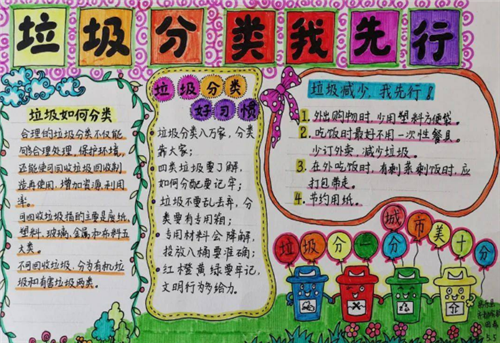 垃圾分类我先行
垃圾如何分类
合理的垃圾分类不仅能
够合理处理,保护环境,
还能使可回收垃圾回收制
造再使用,增加资源利用
率。
可回收垃圾指的主要是废纸,
塑料,玻璃,金属和布料五
大类。
不可回收垃圾,分为有机垃
圾和有害垃圾两类。
垃圾分类
好习惯
垃圾分类入万家,分类
靠大家;
四类垃圾要了解,
如何分配要记牢;
垃圾不要乱丢弃,分
类要有专用箱;
专用材料会降解,
投放入桶要准确;
红木橙黄绿要牢记,
文明行为多给力。
垃圾减少,我先行!
1. 外出购物时,少用塑料方便袋。
2. 吃饭时最好不用一次性餐具。
少订外卖,减少垃圾。
3. 在外吃饭时,有剩菜剩饭时,应
打包带走。
4. 节约用纸。
垃圾分一分
城市美十分